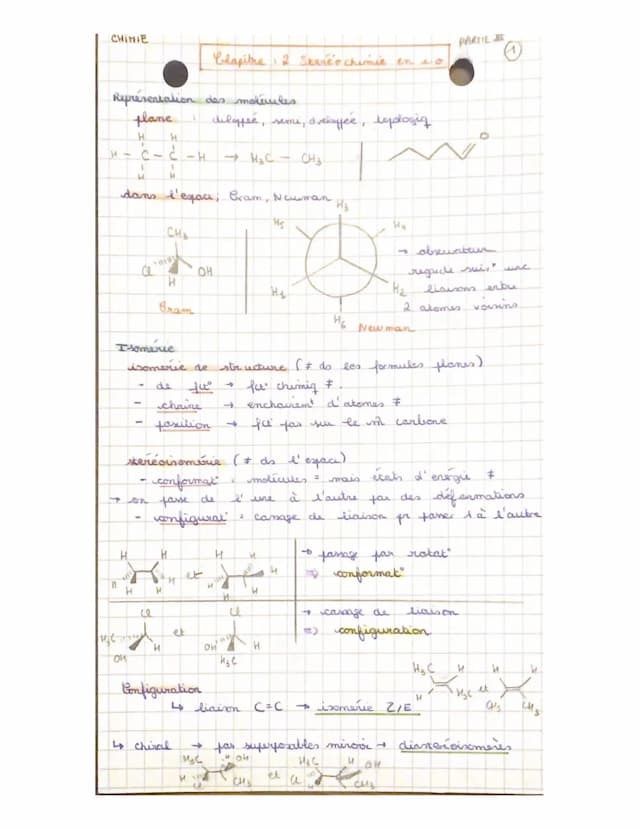 CHIMIE
PARTIE III
1
Chapitre : 2 Stéréochimie en c.o
Représentation des molécules
plane : déloppée, semi, développée, topologiq
H H
H - C - C - H → H₃C - CH₃
H H
O
dans l'espace ; Cram, Newman
CH₃
Cl
OH
H
Cram
H₃
H₅
H₄
H₁
H₂
H₆
Newman
→ observateur
regarde suivt une
liaisons entre
2 atomes voisins
Isomérie
isomérie de structure (≠ ds les formules planes)
- de fct° → fct° chimiq ≠.
- chaîne → enchaînemt d'atomes ≠
- position → fct° pas sur le m̂ carbone
stéréoisomérie (≠ ds l'espace)
- conformat° : molécules = mais états d'énergie ≠
→ on passe de l'une à l'autre par des déformations
- configurat° = cassage de liaison pr passer 1 à l'autre
H H
H H
H H
et
H H
H H
H H
→ passage par rotat°
⇒ conformat°
Cl
H₃C
H
OH
et
Cl
OH
H
H₃C
→ cassage de liaison
⇒ configuration
Configuration
H₃C H
H H₃C
et
H H
CH₃ CH₃
↳ liaison C=C → isomérie Z/E
↳ chiral → pas superposables miroir → diastéréoisomères
H₃C H OH
H Cl CH₃
et
H₃C H OH
Cl H CH₃